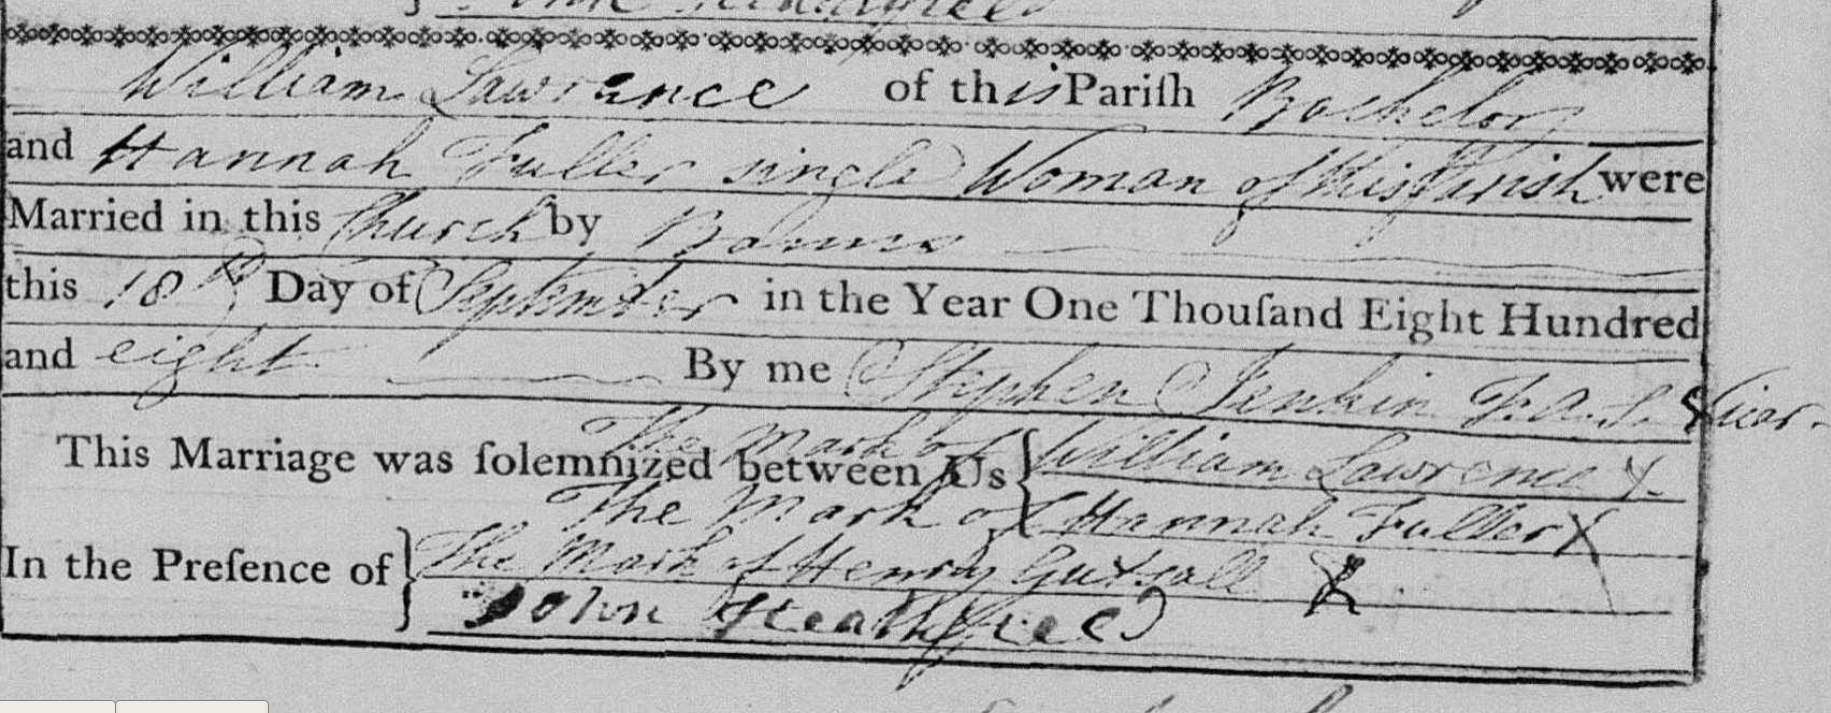 William Lawrence of this Pariſh Bachelor
and Hannah Fuller single Woman of this Parish were
Married in this Church by Banns
this 18th Day of September in the Year One Thouſand Eight Hundred
and eight By me Stephen Jenkin Vicar
The Mark of
This Marriage was ſolemnized between Us { William Lawrence X
The Mark of Hannah Fuller X
In the Preſence of } The Mark of Henry Gutsall X
John Heathfield